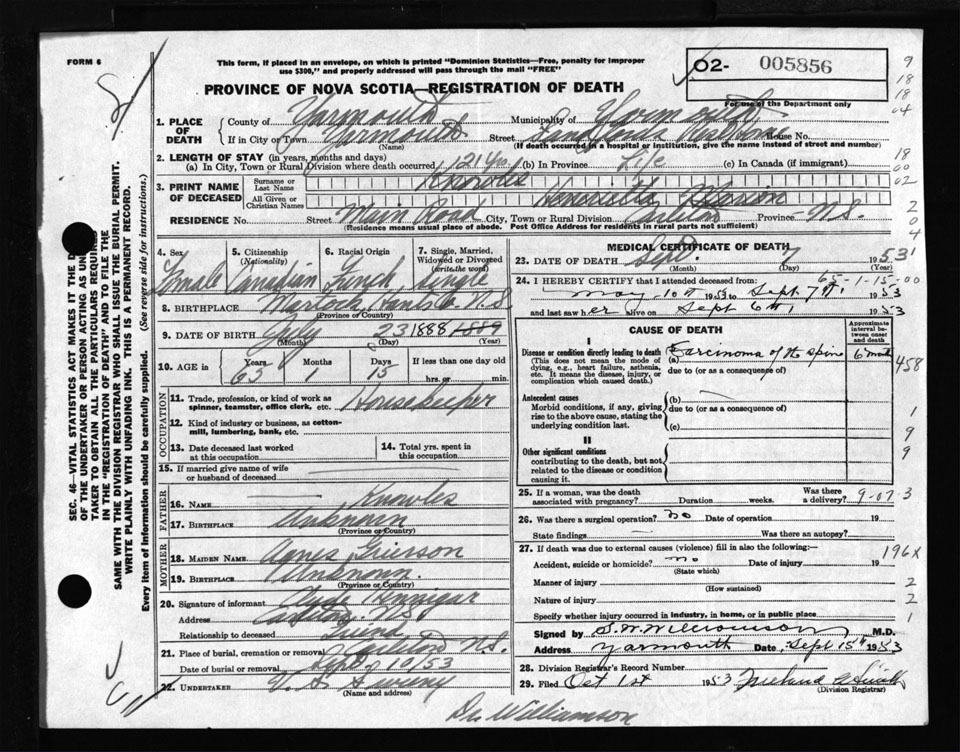 FORM 6
This form, if placed in an envelope, on which is printed "Dominion Statistics—Free, penalty for improper
use $300," and properly addressed will pass through the mail "FREE"
O2- 005856
PROVINCE OF NOVA SCOTIA—REGISTRATION OF DEATH
For use of the Department only
1. PLACE OF DEATH
County of Yarmouth Municipality of Yarmouth
If in City or Town Yarmouth Street House No.
(Name) (If death occurred in a hospital or institution, give the name instead of street and number)
2. LENGTH OF STAY (in years, months and days)
(a) In City, Town or Rural Division where death occurred (b) In Province Life (c) In Canada (if immigrant)
3. PRINT NAME OF DECEASED
Surname or Last Name Knowles
All Given or Christian Names Henrietta Marion
RESIDENCE No. Street Main Road City, Town or Rural Division Carleton Province N.S.
(Residence means usual place of abode. Post Office Address for residents in rural parts not sufficient)
4. Sex Female
5. Citizenship (Nationality) Canadian
6. Racial Origin French
7. Single, Married, Widowed or Divorced (write the word) Single
8. BIRTHPLACE Martock, Hants Co N.S.
(Province or Country)
9. DATE OF BIRTH July 23 1888 1889
(Month) (Day) (Year)
10. AGE in Years 65 Months 1 Days 15 If less than one day old
hrs. or min.
OCCUPATION
11. Trade, profession, or kind of work as
spinner, teamster, office clerk, etc. Housekeeper
12. Kind of industry or business, as cotton-
mill, lumbering, bank, etc.
13. Date deceased last worked
at this occupation
14. Total yrs. spent in
this occupation
15. If married give name of wife
or husband of deceased
FATHER
16. NAME Knowles
17. BIRTHPLACE Unknown
(Province or Country)
MOTHER
18. MAIDEN NAME Agnes Grierson
19. BIRTHPLACE Unknown.
(Province or Country)
20. Signature of informant Clyde Hennigar
Address Carleton, N.S.
Relationship to deceased Friend
21. Place of burial, cremation or removal Carleton N.S.
Date of burial or removal Sept 10/53
22. UNDERTAKER V. S. Sweeny
(Name and address)
Dr. Williamson
MEDICAL CERTIFICATE OF DEATH
23. DATE OF DEATH Sept. 7 1953
(Month) (Day) (Year)
24. I HEREBY CERTIFY that I attended deceased from 65-1-15-00
May 10th 1953 to Sept 7th 1953
and last saw her alive on Sept 6th 1953
CAUSE OF DEATH
Approximate interval between onset and death
I
Disease or condition directly leading to death (a) Carcinoma of the spine
(This does not mean the mode of
dying, e.g., heart failure, asthenia,
etc. It means the disease, injury, or
complication which caused death.)
due to (or as a consequence of)
Antecedent causes
Morbid conditions, if any, giving
rise to the above cause, stating the
underlying condition last.
(b)
due to (or as a consequence of)
(c)
II
Other significant conditions
contributing to the death, but not
related to the disease or condition
causing it.
25. If a woman, was the death
associated with pregnancy? Duration weeks. Was there
a delivery? 9-07-3
26. Was there a surgical operation? no Date of operation 19
State findings Was there an autopsy?
27. If death was due to external causes (violence) fill in also the following:— 196X
Accident, suicide or homicide? no Date of injury 19
(State which)
Manner of injury
(How sustained)
Nature of injury
Specify whether injury occurred in industry, in home, or in public place
Signed by M.D.
Address Yarmouth Date, Sept 15th 1953
28. Division Registrar's Record Number
29. Filed Oct 1st 1953
(Division Registrar)
9
18
18
04
18
00
02
2
0
4
458
1
9
9
2
2
1
SEC. 46—VITAL STATISTICS ACT MAKES IT THE D
OF THE UNDERTAKER OR PERSON ACTING AS UN
TAKER TO OBTAIN ALL THE PARTICULARS REQUIRE
IN THE "REGISTRATION OF DEATH" AND TO FILE THE
SAME WITH THE DIVISION REGISTRAR WHO SHALL ISSUE THE BURIAL PERMIT.
WRITE PLAINLY WITH UNFADING INK. THIS IS A PERMANENT RECORD.
Every item of information should be carefully supplied. (See reverse side for instructions.)